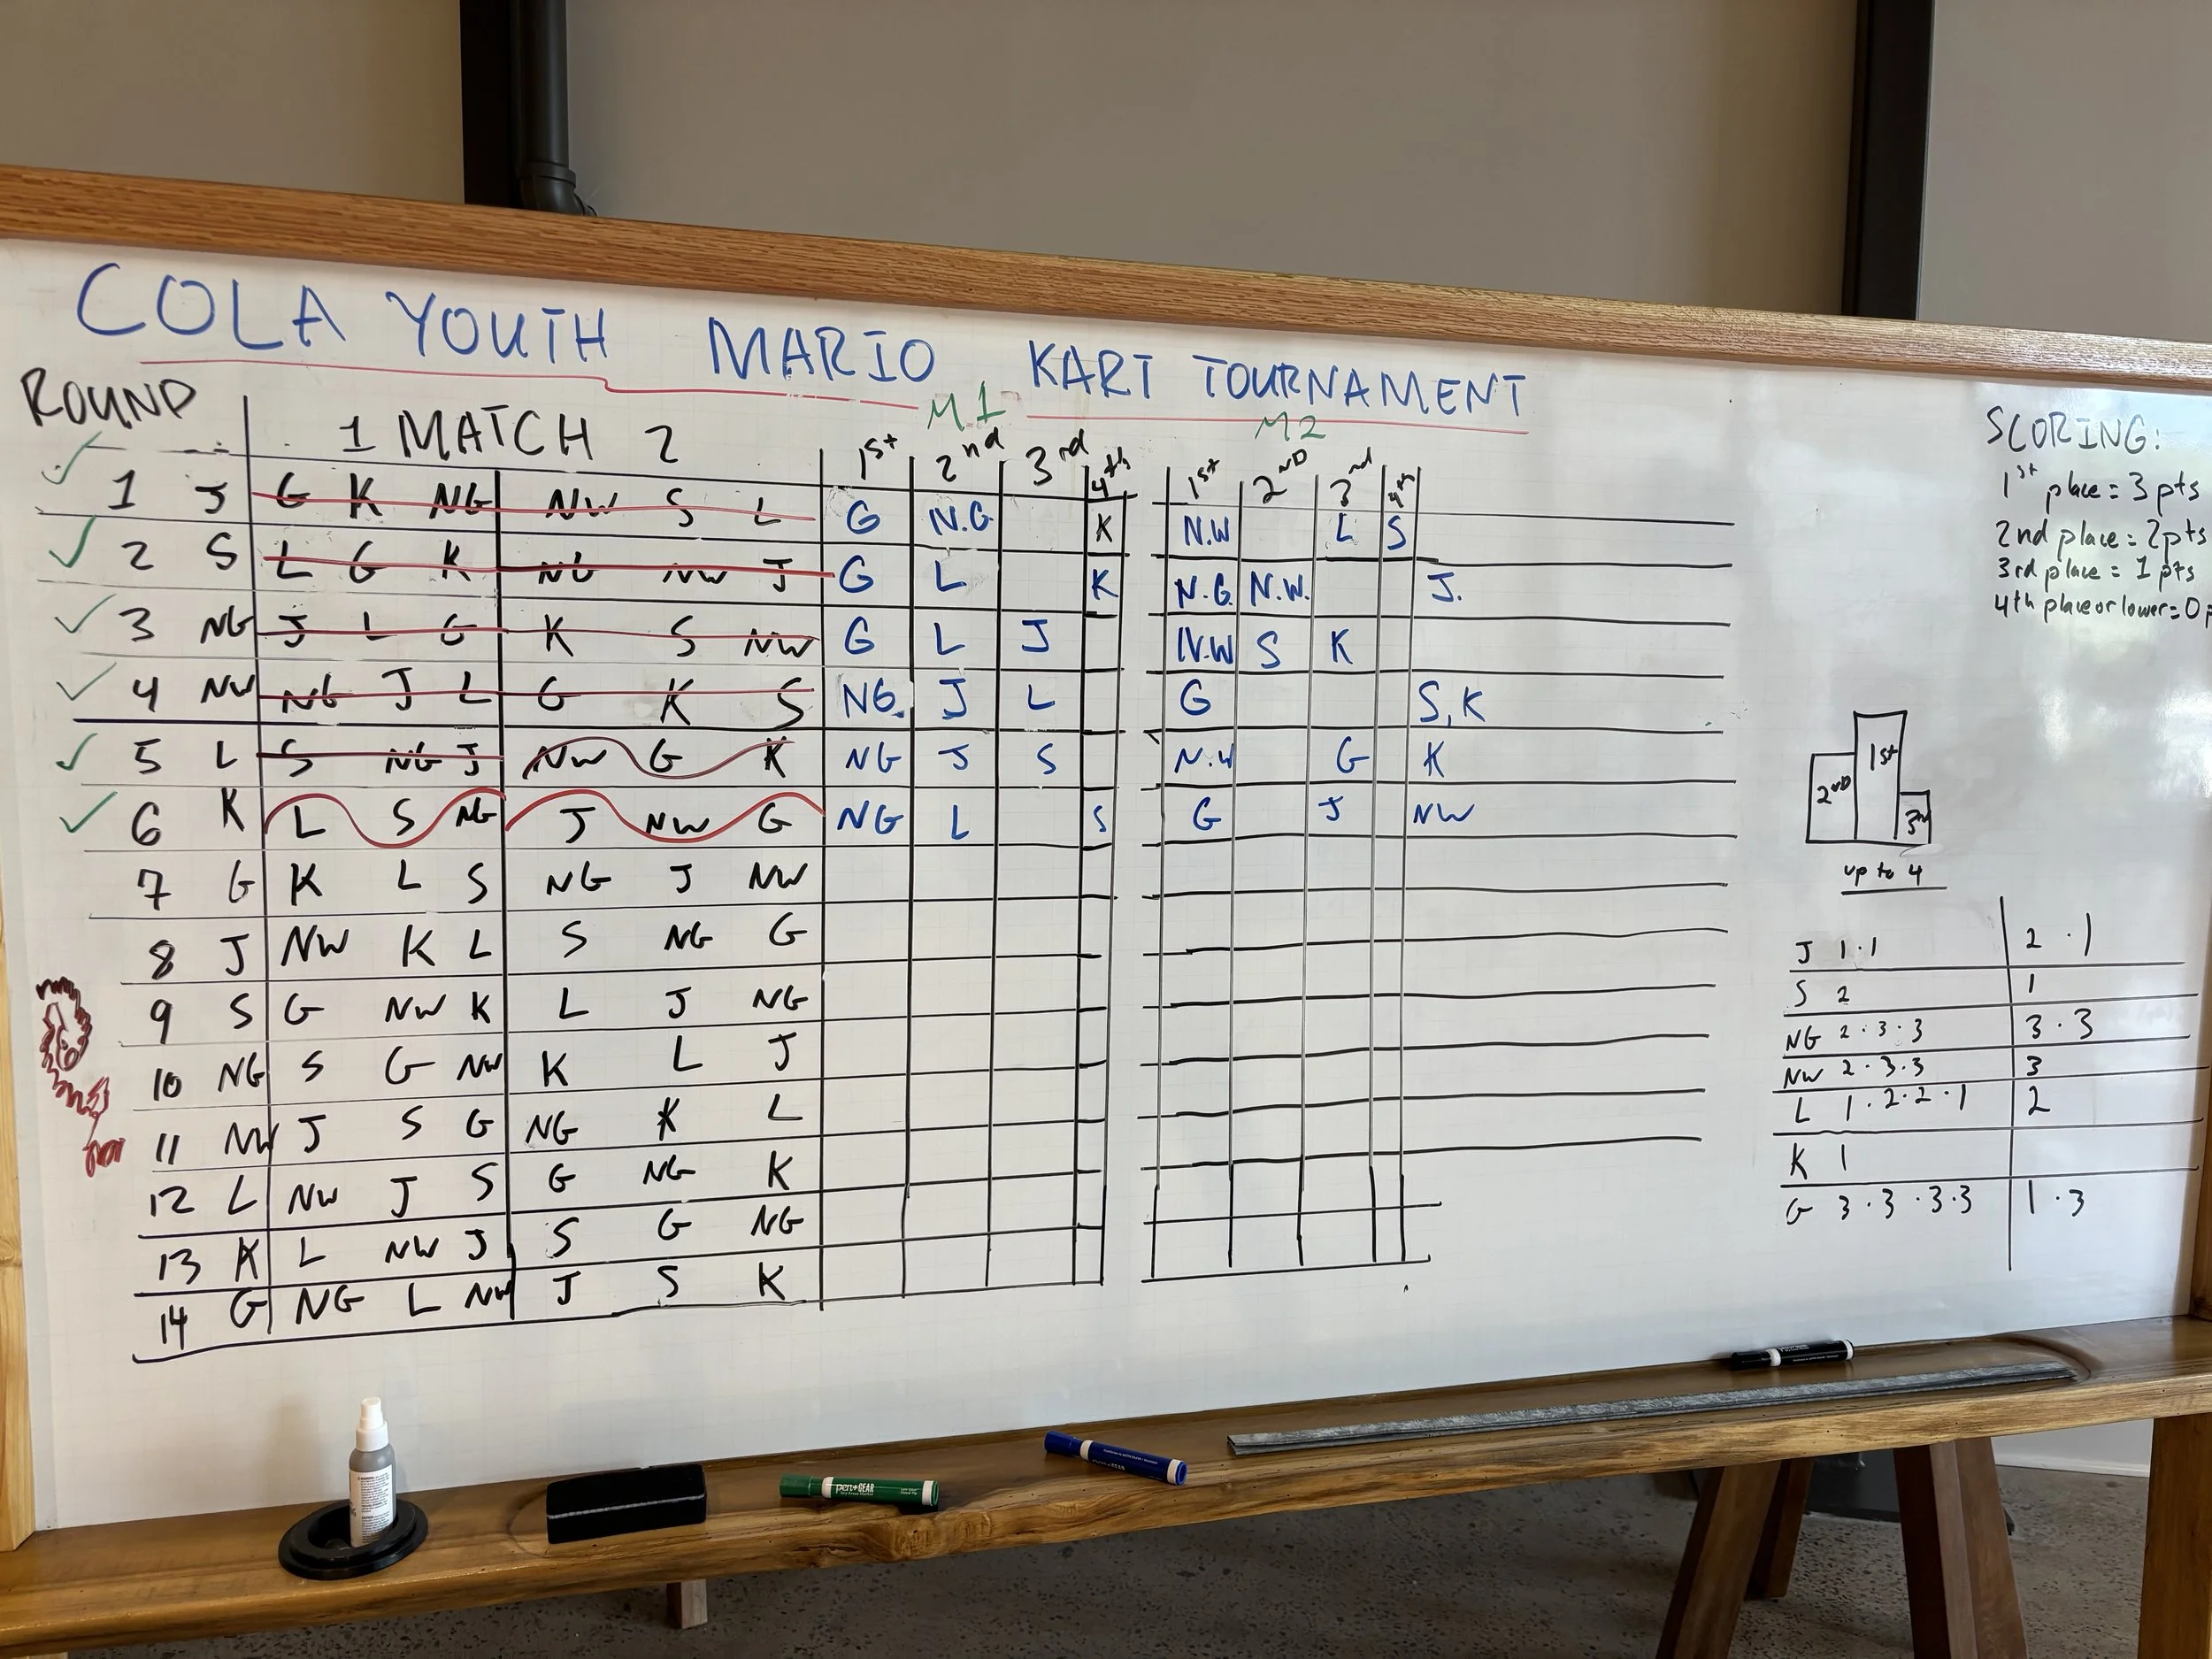 COLA YOUTH MARIO KART TOURNAMENT
ROUND 1 MATCH 2 M1 M2
1st 2nd 3rd 4th 1st 2ND 3rd 4th
1 J G K NG NW S L G N.G. K N.W L S
2 S L G K NG NW J G L K N.G. N.W. J.
3 NG J L G K S NW G L J N.W S K
4 NW NG J L G K S NG. J L G S, K
5 L S NG J NW G K NG J S N.W G K
6 K L S NG J NW G NG L S G J NW
7 G K L S NG J NW
8 J NW K L S NG G
9 S G NW K L J NG
10 NG S G NW K L J
11 NW J S G NG K L
12 L NW J S G NG K
13 K L NW J S G NG
14 G NG L NW J S K
SCORING:
1st place = 3 pts
2nd place = 2pts
3rd place = 1 pts
4th place or lower = 0 p
2ND 1st 3rd
up to 4
J 1·1 2·1
S 2 1
NG 2·3·3 3·3
NW 2·3·3 3
L 1·2·2·1 2
K 1
G 3·3·3·3 1·3
pen+GEAR